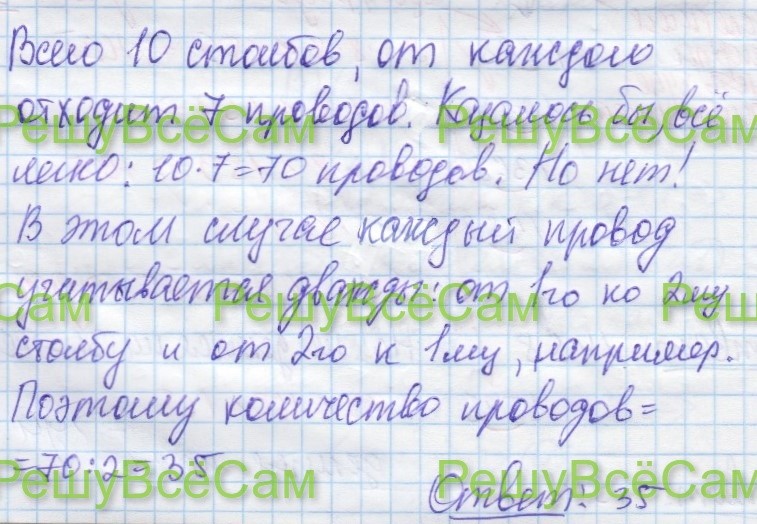 Всего 10 столбов, от каждого
отходит 7 проводов. Казалось бы, всё
легко: 10·7=70 проводов. Но нет!
В этом случае каждый провод
учитывается дважды: от 1го ко 2му
столбу и от 2го к 1му, например.
Поэтому количество проводов=
=70:2=35
Ответ: 35
РешуВсёСам
РешуВсёСам
Сам
РешуВсёСам
Решу
РешуВсёСам
РешуВсёСам